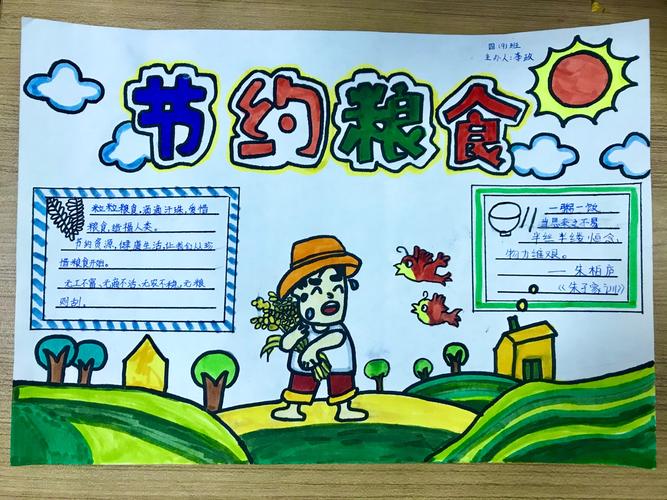 四(9)班
主办人:李政
节约粮食
粒粒粮食,滴滴汗珠,爱惜
粮食,造福人类。
节约资源,健康生活,让我们从珍
惜粮食开始。
无工不富、无商不活、无农不稳,无粮
则乱。
一粥一饭
当思来之不易
半丝半缕恒念,
物力维艰。
—朱柏庐
《朱子家训》